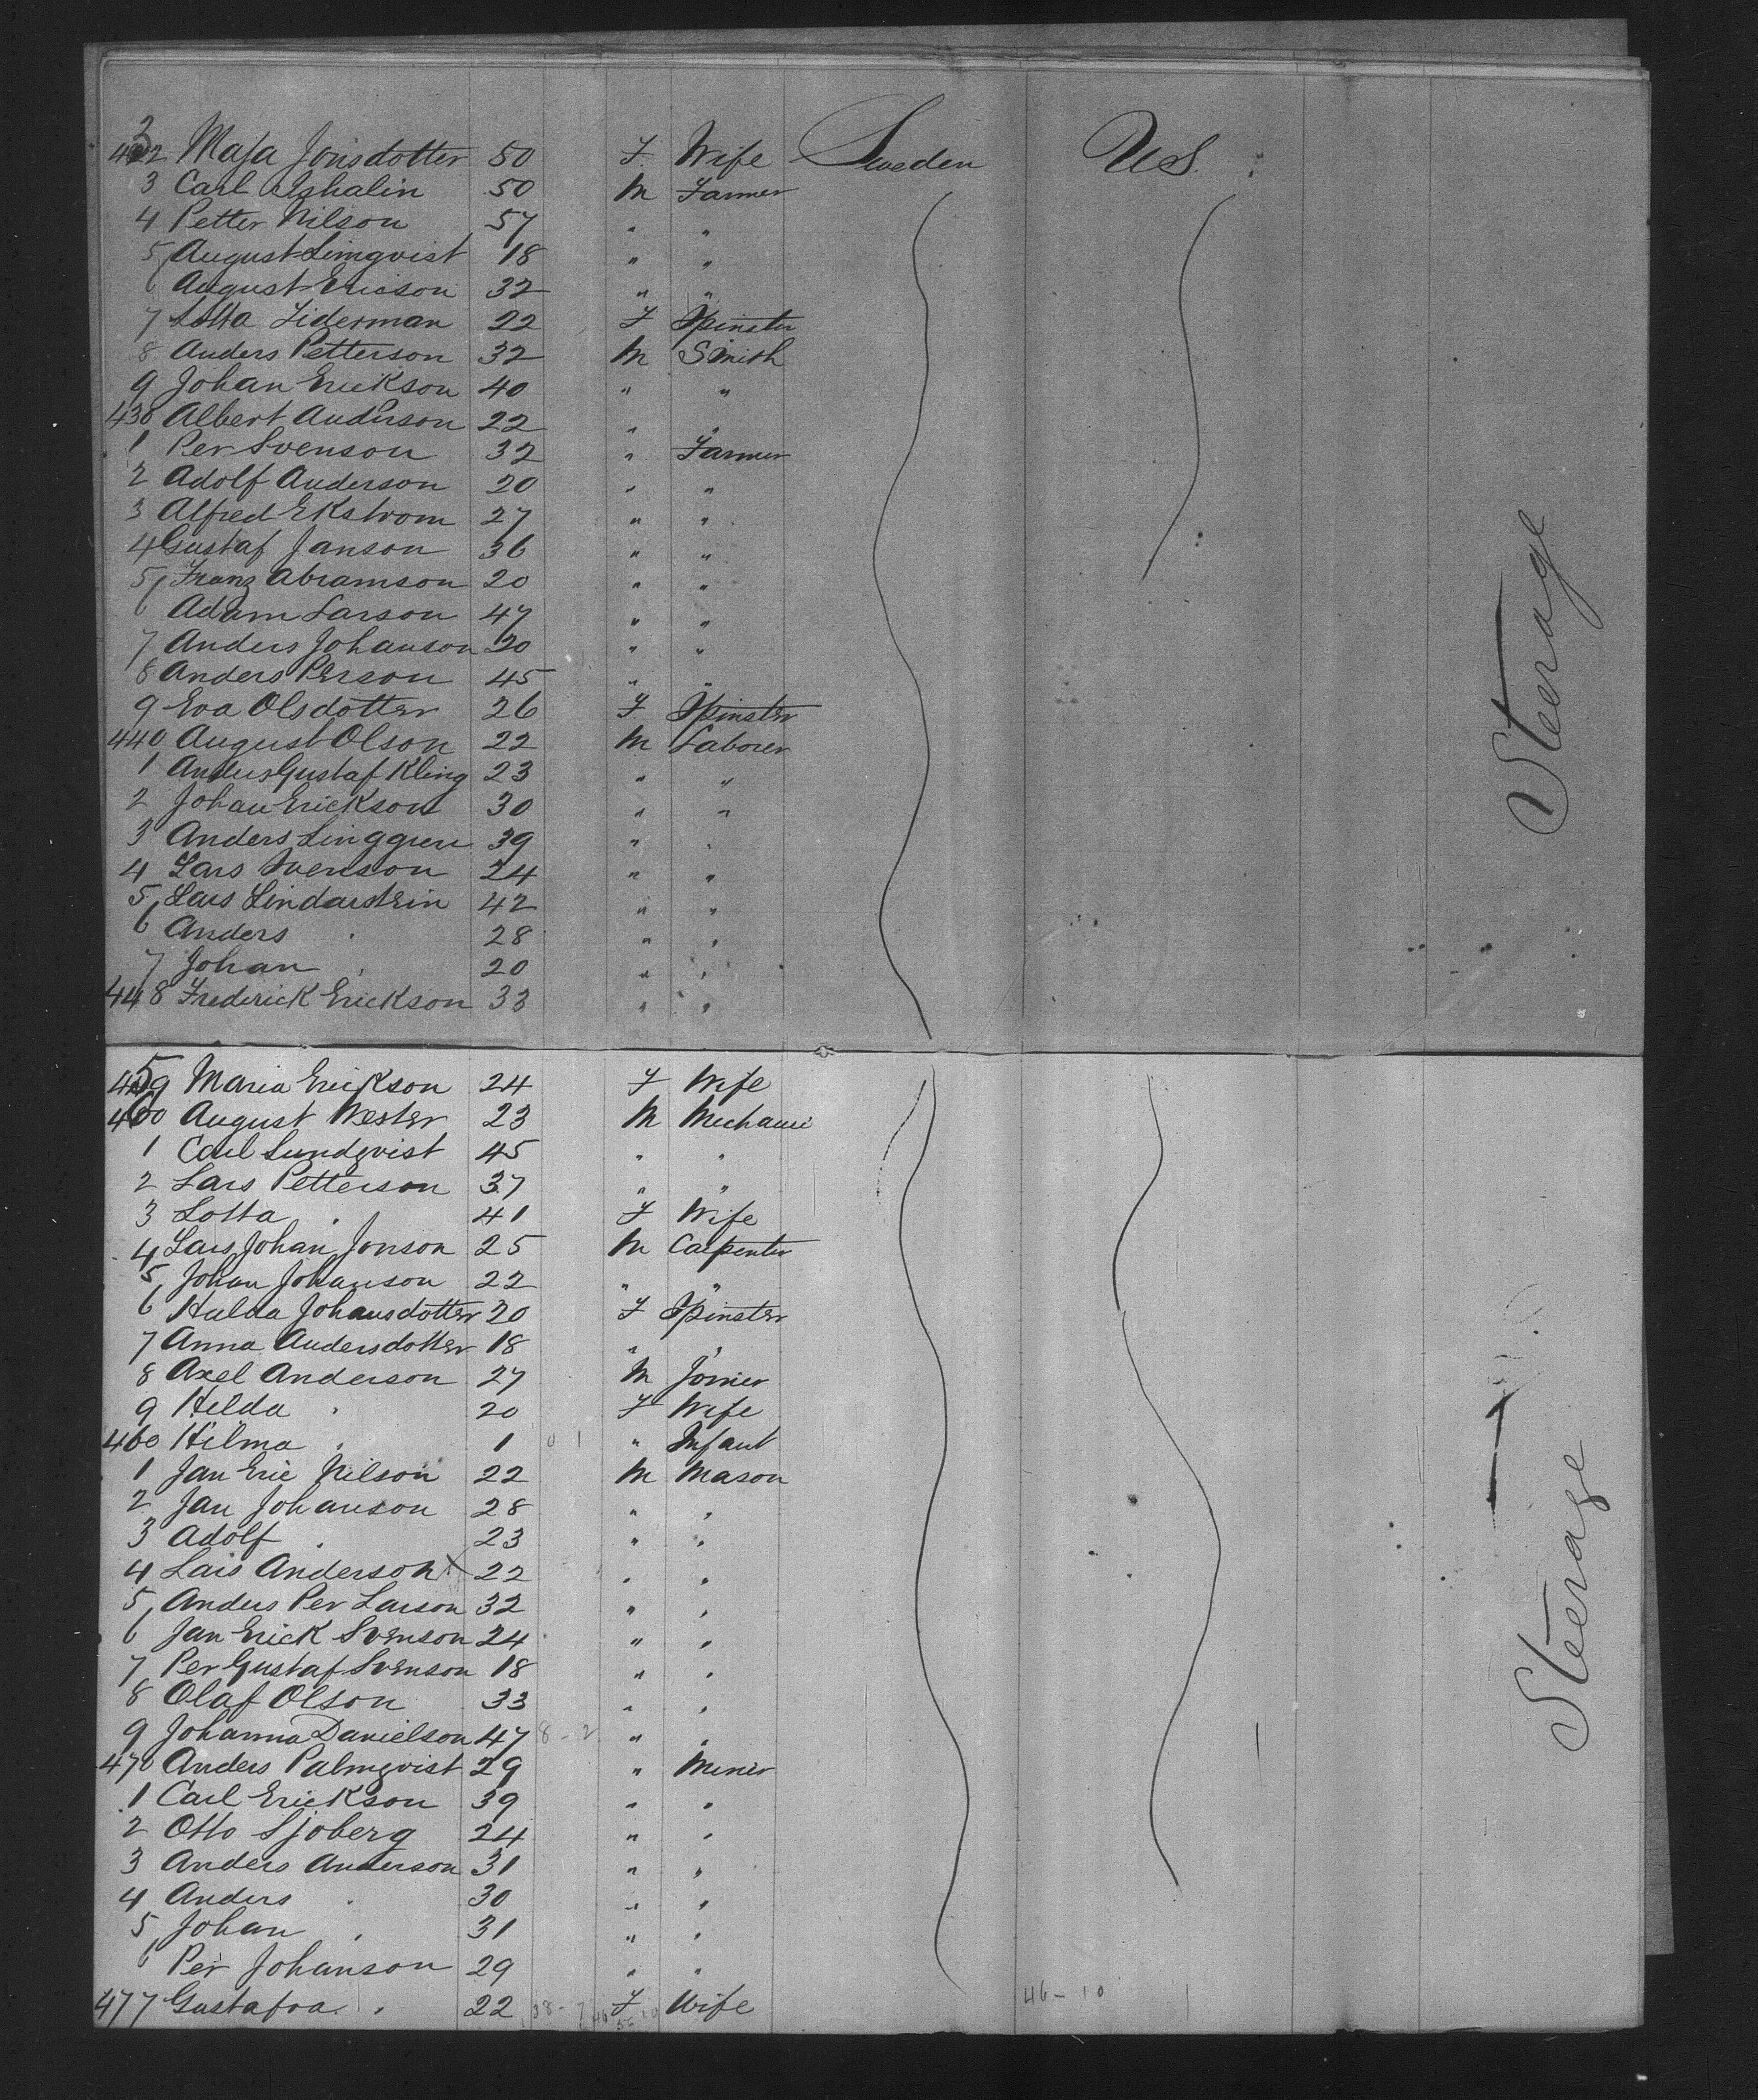 432 Maja Jonsdotter 50 F. Wife Sweden U.S.
3 Carl 50 M Farmer
4 Petter Nilson 57 " "
5 August Limqvist 18 " "
6 August Ericson 32 " "
7 Lotta Liderman 22 F Spinster
8 Anders Petterson 32 M Smith
9 Johan Erickson 40 " "
430 Albert Anderson 22 " "
1 Per Svenson 32 " Farmer
2 Adolf Anderson 20 " "
3 Alfred Ekstrom 27 " "
4 Gustaf Janson 36 " "
5 Franz Abramson 20 " "
6 Adam Larson 47 " "
7 Anders Johanson 20 " "
8 Anders Person 45 " "
9 Eva Olsdotter 26 F Spinster
440 August Olson 22 M Laborer
1 Anders Gustaf Kling 23 " "
2 Johan Erickson 30 " "
3 Anders Linggren 39 " "
4 Lars Svenson 24 " "
5 Lars Lindarstein 42 " "
6 Anders " 28 " "
7 Johan " 20 " "
448 Frederick Erickson 33 " "
Steerage
459 Maria Erickson 24 F Wife
460 August Wester 23 M Mechanic
1 Carl Lundqvist 45 " "
2 Lars Petterson 37 " "
3 Lotta " 41 F Wife
4 Lars Johan Jonson 25 M Carpenter
5 Johan Johanson 22 " "
6 Hulda Johansdotter 20 F Spinster
7 Anna Andersdotter 18 " "
8 Axel Anderson 27 M Joiner
9 Hilda " 20 F Wife
460 Hilma " 1 0 1 " Infant
1 Jan Eric Nilson 22 M Mason
2 Jan Johanson 28 " "
3 Adolf " 23 " "
4 Lars Anderson X 22 " "
5 Anders Per Larson 32 " "
6 Jan Erick Svenson 24 " "
7 Per Gustaf Svenson 18 " "
8 Olaf Olson 33 " "
9 Johanna Danielson 47 8-2 " "
470 Anders Palmqvist 29 " Miner
1 Carl Erickson 39 " "
2 Otto Sjoberg 24 " "
3 Anders Anderson 31 " "
4 Anders " 30 " "
5 Johan " 31 " "
6 Per Johanson 29 " "
477 Gustafva " 22 38-7 F Wife 46-10
Steerage